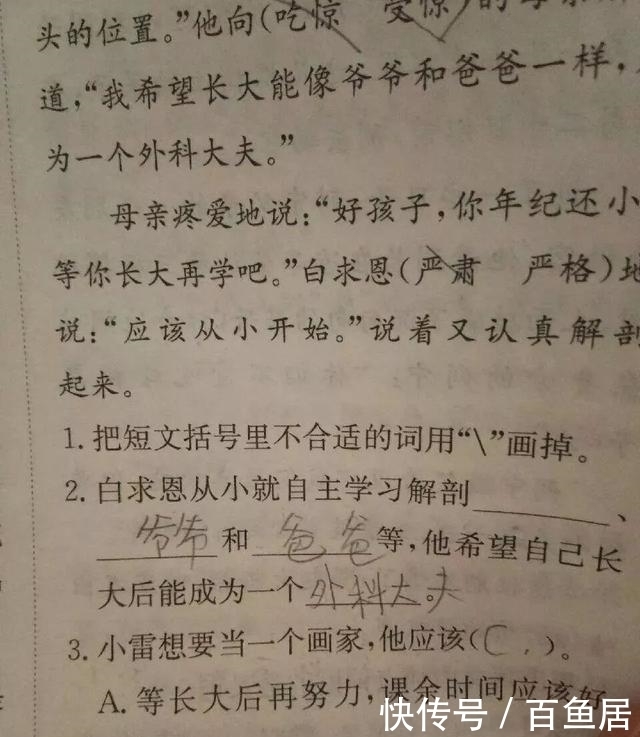 头的位置。”他向(吃惊 受惊)的母亲
道,“我希望长大能像爷爷和爸爸一样,
为一个外科大夫。”
母亲疼爱地说:“好孩子,你年纪还小
等你长大再学吧。”白求恩(严肃 严格)地
说:“应该从小开始。”说着又认真解剖
起来。
1. 把短文括号里不合适的词用“\”画掉。
2. 白求恩从小就自主学习解剖________、
爷爷和爸爸等,他希望自己长
大后能成为一个外科大夫。
3. 小雷想要当一个画家,他应该(C)。
A. 等长大后再努力,课余时间应该好
快传号 / 百鱼居